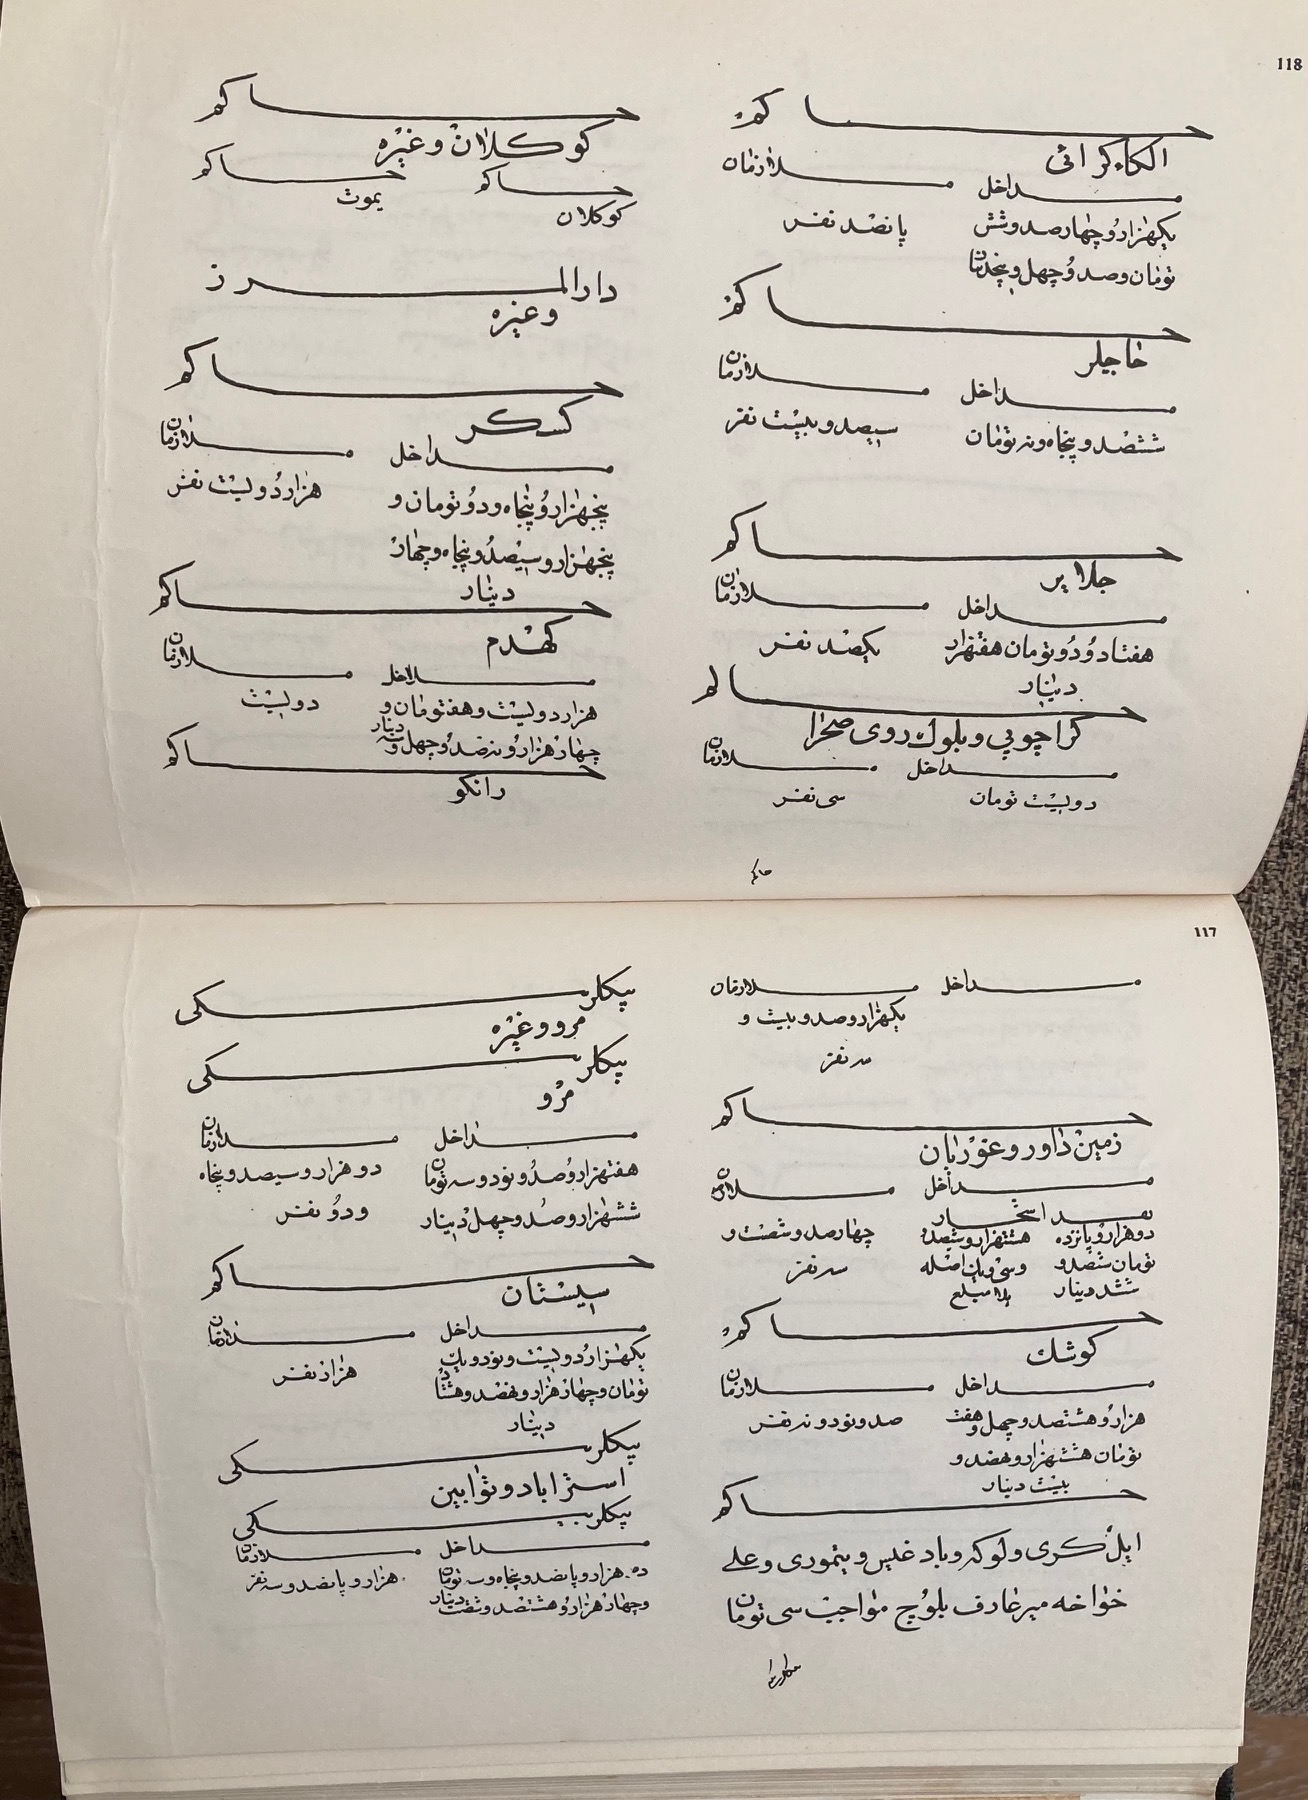 118
حاکم
الکاء کرائی
مداخل ملازمان
یکهزار و چهارصد و شش پانصد نفر
تومان و صد و چهل و پنجدینار
حاکم
حاجیلر
مداخل ملازمان
ششصد و پنجاه و نه تومان سیصد و بیست نفر
حاکم
جلایر
مداخل ملازمان
هفتاد و دو تومان هفتهزار یکصد نفر
دینار
حاکم
کراچوبی و بلوک روی صحرا
مداخل ملازمان
دویست تومان سی نفر
حاکم
حاکم
کوکلان و غیره
حاکم حاکم
کوکلان یموت
دارالمرز
و غیره
حاکم
کسکر
مداخل ملازمان
پنجهزار و پنجاه و دو تومان و هزار دویست نفر
پنجهزار و سیصد و پنجاه و چهار
دینار
حاکم
کهدم
مداخل ملازمان
هزار دویست و هفتومان و دویست
چهار هزار و نهصد و چهل و سه دینار
حاکم
رانکو
117
مداخل ملازمان
یکهزار و صد و بیست و
سه نفر
حاکم
زمین داور و غوریان
مداخل ملازمان
نقد اسخار
دوهزار و پانزده هشتهزار و ششصد و چهارصد و شصت و
تومان ششصد و وسی و یک اصله سه نفر
ششد دینار بلا مبلغ
حاکم
کوشک
مداخل ملازمان
هزار و هشتصد و چهل و هفت صد و نود و نه نفر
تومان هشتهزار و نهصد و
بیست دینار
حاکم
ایل کری و لوکه و بادغیس و یتموری و علی
خواجه میر عارف بلوچ مواجب سی تومان
بیکلربیکی
مرو و غیره
بیکلربیکی
مرو
مداخل ملازمان
هفتهزار و صد و نود و سه تومان دو هزار و سیصد و پنجاه
ششهزار و صد و چهل دینار و دو نفر
حاکم
سیستان
مداخل ملازمان
یکهزار و دویست و نود و یک هزار نفر
تومان و چهار هزار و نهصد و هشتاد
دینار
بیکلربیکی
استراباد و توابین
بیکلربیکی
مداخل ملازمان
ده هزار و پانصد و پنجاه و سه تومان هزار و پانصد و سه نفر
و چهار هزار و هشتصد و شصت دینار